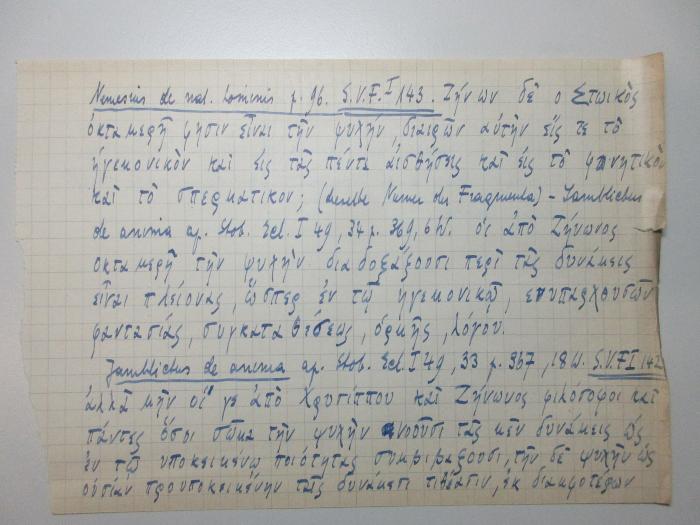 Nemesius de nat. hominis p. 96. S.V.F. I 143. Ζήνων δὲ ὁ Στωικὸς
ὀκταμερῆ φησιν εἶναι τὴν ψυχήν, διαιρῶν αὐτὴν εἴς τε τὸ
ἡγεμονικὸν καὶ εἰς τὰς πέντε αἰσθήσεις καὶ εἰς τὸ φωνητικὸν
καὶ τὸ σπερματικόν; (derselbe Numer des Fragments) – Iamblichus
de anima ap. Stob. Ecl. I 49, 34 p. 369, 6 W. οἱ ἀπὸ Ζήνωνος
ὀκταμερῆ τὴν ψυχὴν διαδοξάζουσι περὶ τὰς δυνάμεις
εἶναι πλείονας, ὥσπερ ἐν τῷ ἡγεμονικῷ, ἐνυπαρχουσῶν
φαντασίας, συγκαταθέσεως, ὁρμῆς, λόγου.
Jamblichus de anima ap. Stob. Ecl. I 49, 33 p. 367, 18 W. S.V.F I 142
ἀλλὰ μὴν οἵ γε ἀπὸ Χρυσίππου καὶ Ζήνωνος φιλόσοφοι καὶ
πάντες ὅσοι σῶμα τὴν ψυχὴν νοοῦσι τὰς μὲν δυνάμεις ὡς
ἐν τῷ ὑποκειμένῳ ποιότητας συμβιβάζουσι, τὴν δὲ ψυχὴν ὡς
οὐσίαν προυποκειμένην ταῖς δυνάμεσι τιθέασιν, ἐκ δ' ἀμφοτέρων